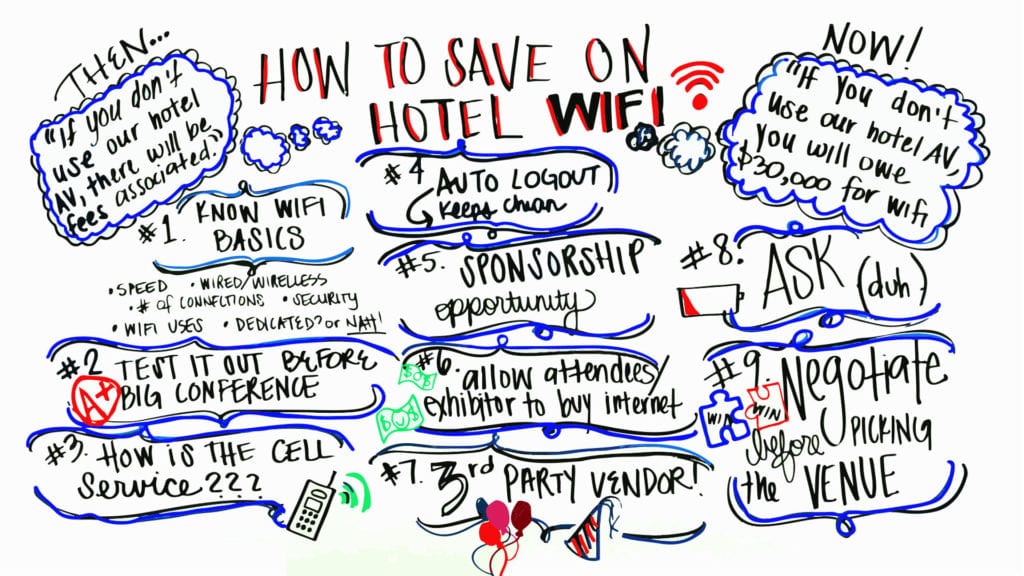 THEN...
"If you don't
use our hotel
AV, there will be
fees associated."
HOW TO SAVE ON
HOTEL WIFI
NOW!
"If you don't
use our hotel AV,
you will owe
$30,000 for wifi
#1. KNOW WIFI
BASICS
• SPEED • WIRED/WIRELESS
• # of CONNECTIONS • SECURITY
• WIFI USES • DEDICATED? or NAH!
#2 TEST IT OUT BEFORE
BIG CONFERENCE
A+
#3. HOW IS THE CELL
Service???
#4 AUTO LOGOUT
Keeps
#5. SPONSORSHIP
opportunity
#6. allow attendees/
exhibitor to buy internet
#7. 3rd PARTY VENDOR!
#8. ASK (duh)
#9. Negotiate
WIN WIN
before PICKING
the VENUE